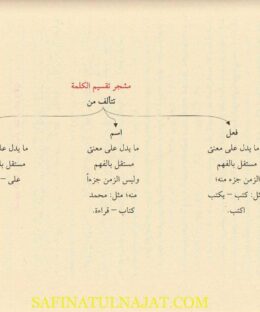 مشجر تقسيم الكلمة
تتألف من
فعل
ما يدل على معنىً
مستقل بالفهم
الزمن جزء منه؛
مثل: كتب – يكتب
اكتب.
اسم
ما يدل على معنىً
مستقل بالفهم
وليس الزمن جزءاً
منه؛ مثل: محمد
كتاب – قراءة.
ما يدل على
مستقل بالف
على –
SAFINATULNAJAT.COM